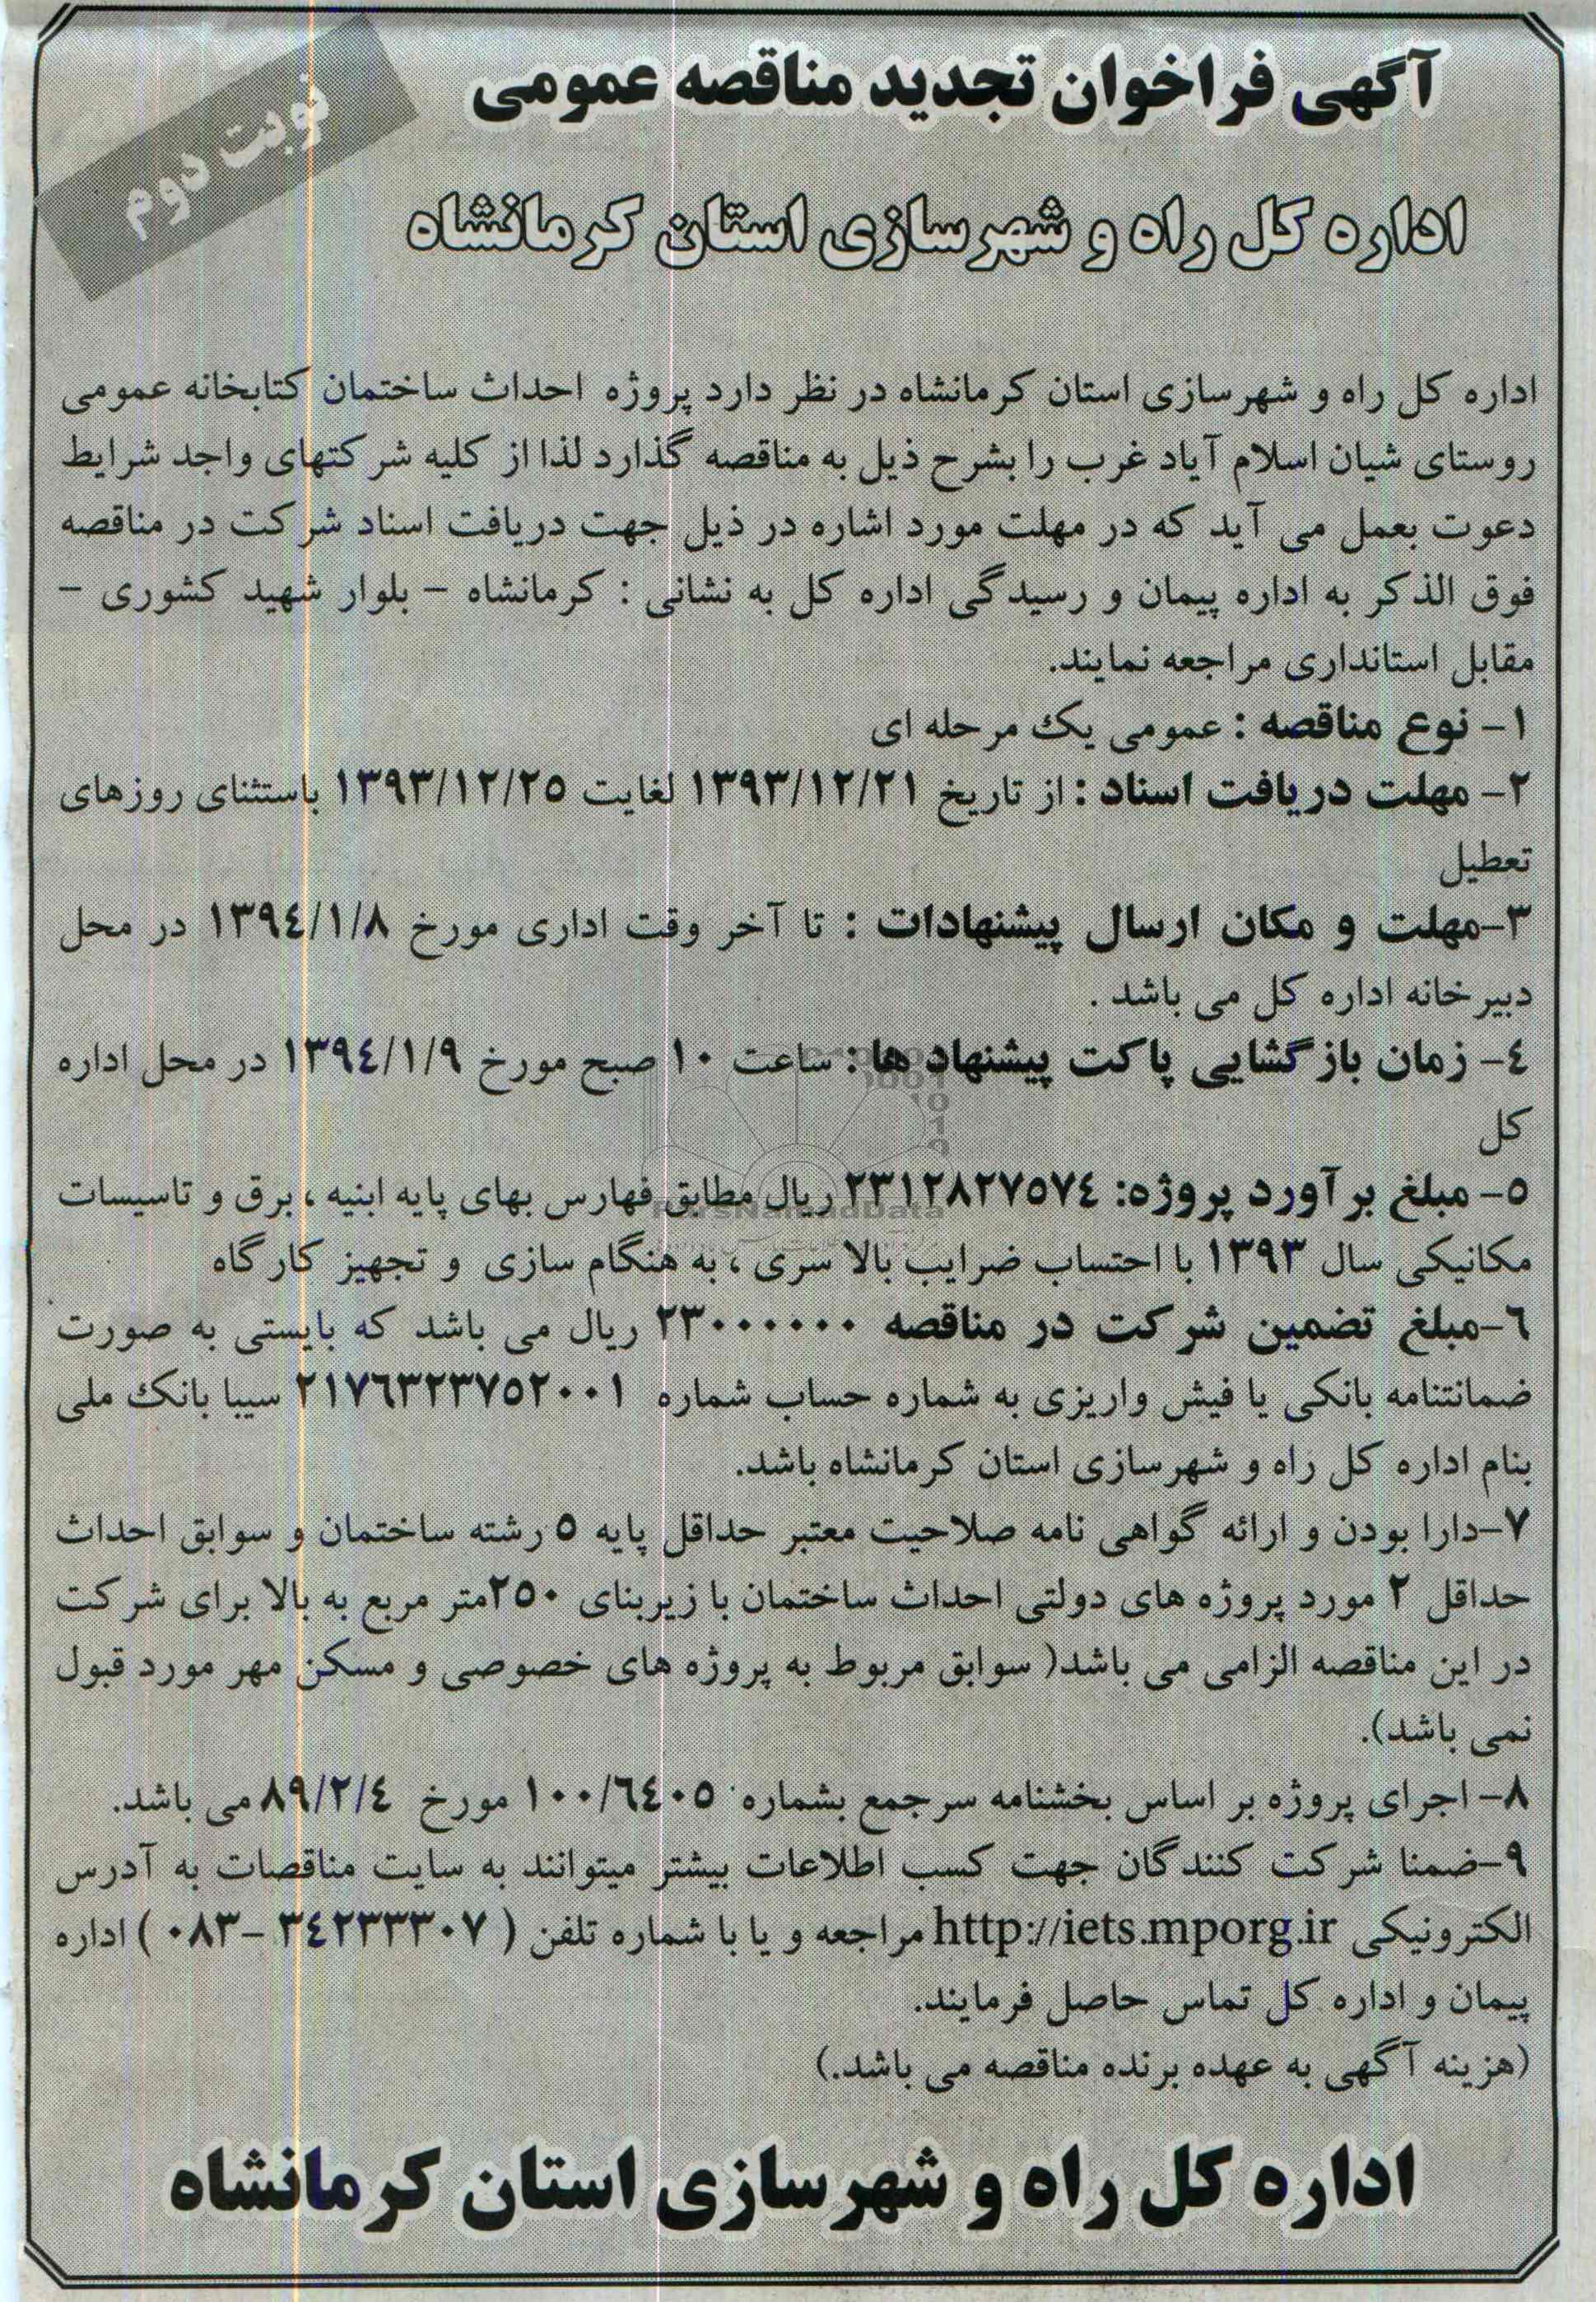 آگهی فراخوان تجدید مناقصه عمومی
نوبت دوم
اداره کل راه و شهرسازی استان کرمانشاه
اداره کل راه و شهرسازی استان کرمانشاه در نظر دارد پروژه احداث ساختمان کتابخانه عمومی
روستای شیان اسلام آیاد غرب را بشرح ذیل به مناقصه گذارد لذا از کلیه شرکتهای واجد شرایط
دعوت بعمل می آید که در مهلت مورد اشاره در ذیل جهت دریافت اسناد شرکت در مناقصه
فوق الذکر به اداره پیمان و رسیدگی اداره کل به نشانی : کرمانشاه – بلوار شهید کشوری –
مقابل استانداری مراجعه نمایند.
۱- نوع مناقصه : عمومی یک مرحله ای
۲- مهلت دریافت اسناد : از تاریخ ۱۳۹۳/۱۲/۲۱ لغایت ۱۳۹۳/۱۲/۲۵ باستثنای روزهای
تعطیل
۳-مهلت و مکان ارسال پیشنهادات : تا آخر وقت اداری مورخ ۱۳۹٤/۱/۸ در محل
دبیرخانه اداره کل می باشد .
٤- زمان بازگشایی پاکت پیشنهاد ها : ساعت ۱۰ صبح مورخ ۱۳۹٤/۱/۹ در محل اداره
کل
۵- مبلغ برآورد پروژه: ۲۳۱۲۸۲۷۵۷٤ ریال مطابق فهارس بهای پایه ابنیه ، برق و تاسیسات
مکانیکی سال ۱۳۹۳ با احتساب ضرایب بالا سری ، به هنگام سازی و تجهیز کارگاه
٦-مبلغ تضمین شرکت در مناقصه ۲۳۰۰۰۰۰۰ ریال می باشد که بایستی به صورت
ضمانتنامه بانکی یا فیش واریزی به شماره حساب شماره ۲۱۷٦۳۲۳۷۵۲۰۰۱ سیبا بانک ملی
بنام اداره کل راه و شهرسازی استان کرمانشاه باشد.
۷-دارا بودن و ارائه گواهی نامه صلاحیت معتبر حداقل پایه ۵ رشته ساختمان و سوابق احداث
حداقل ۲ مورد پروژه های دولتی احداث ساختمان با زیربنای ۲۵۰متر مربع به بالا برای شرکت
در این مناقصه الزامی می باشد( سوابق مربوط به پروژه های خصوصی و مسکن مهر مورد قبول
نمی باشد).
۸- اجرای پروژه بر اساس بخشنامه سرجمع بشماره ۱۰۰/٦٤۰۵ مورخ ۸۹/۲/٤ می باشد.
۹-ضمنا شرکت کنندگان جهت کسب اطلاعات بیشتر میتوانند به سایت مناقصات به آدرس
الکترونیکی http://iets.mporg.ir مراجعه و یا با شماره تلفن ( ۳٤۲۳۳۳۰۷ –۰۸۳ ) اداره
پیمان و اداره کل تماس حاصل فرمایند.
(هزینه آگهی به عهده برنده مناقصه می باشد.)
اداره کل راه و شهرسازی استان کرمانشاه